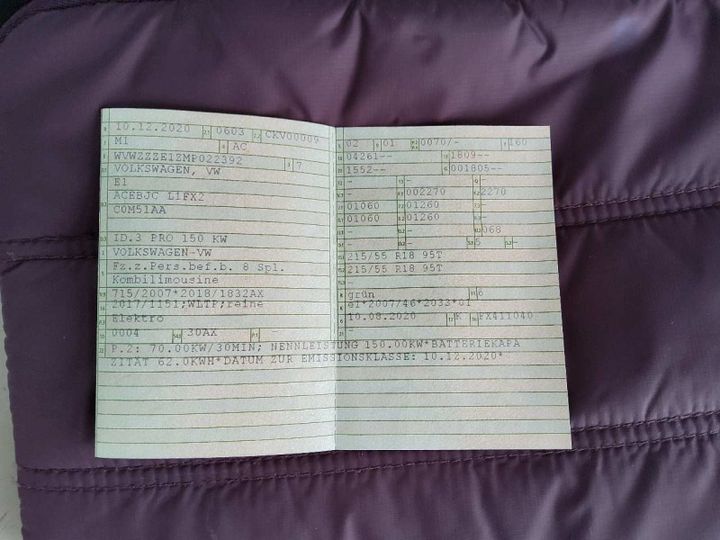 10.12.2020 0603 CKV00009
M1 AC
WVWZZZE1ZMP022392 7
VOLKSWAGEN, VW
E1
ACEBJC L1FX2
C0M51AA
ID.3 PRO 150 KW
VOLKSWAGEN-VW
Fz.z.Pers.bef.b. 8 Spl.
Kombilimousine
715/2007*2018/1832AX
2017/1151;WLTP;reine
Elektro
0004 30AX -
02 01 0070/- 160
04261-- 1809--
1552-- 001805--
- - -
- 002270 2270
01060 01260 -
01060 01260 -
- - 068
- - 5 -
215/55 R18 95T
215/55 R18 95T
-
grün 6
e1*2007/46*2033*01
10.08.2020 K FX411040
-
P.2: 70.00KW/30MIN; NENNLEISTUNG 150.00KW*BATTERIEKAPA
ZITÄT 62.0KWH*DATUM ZUR EMISSIONSKLASSE: 10.12.2020*